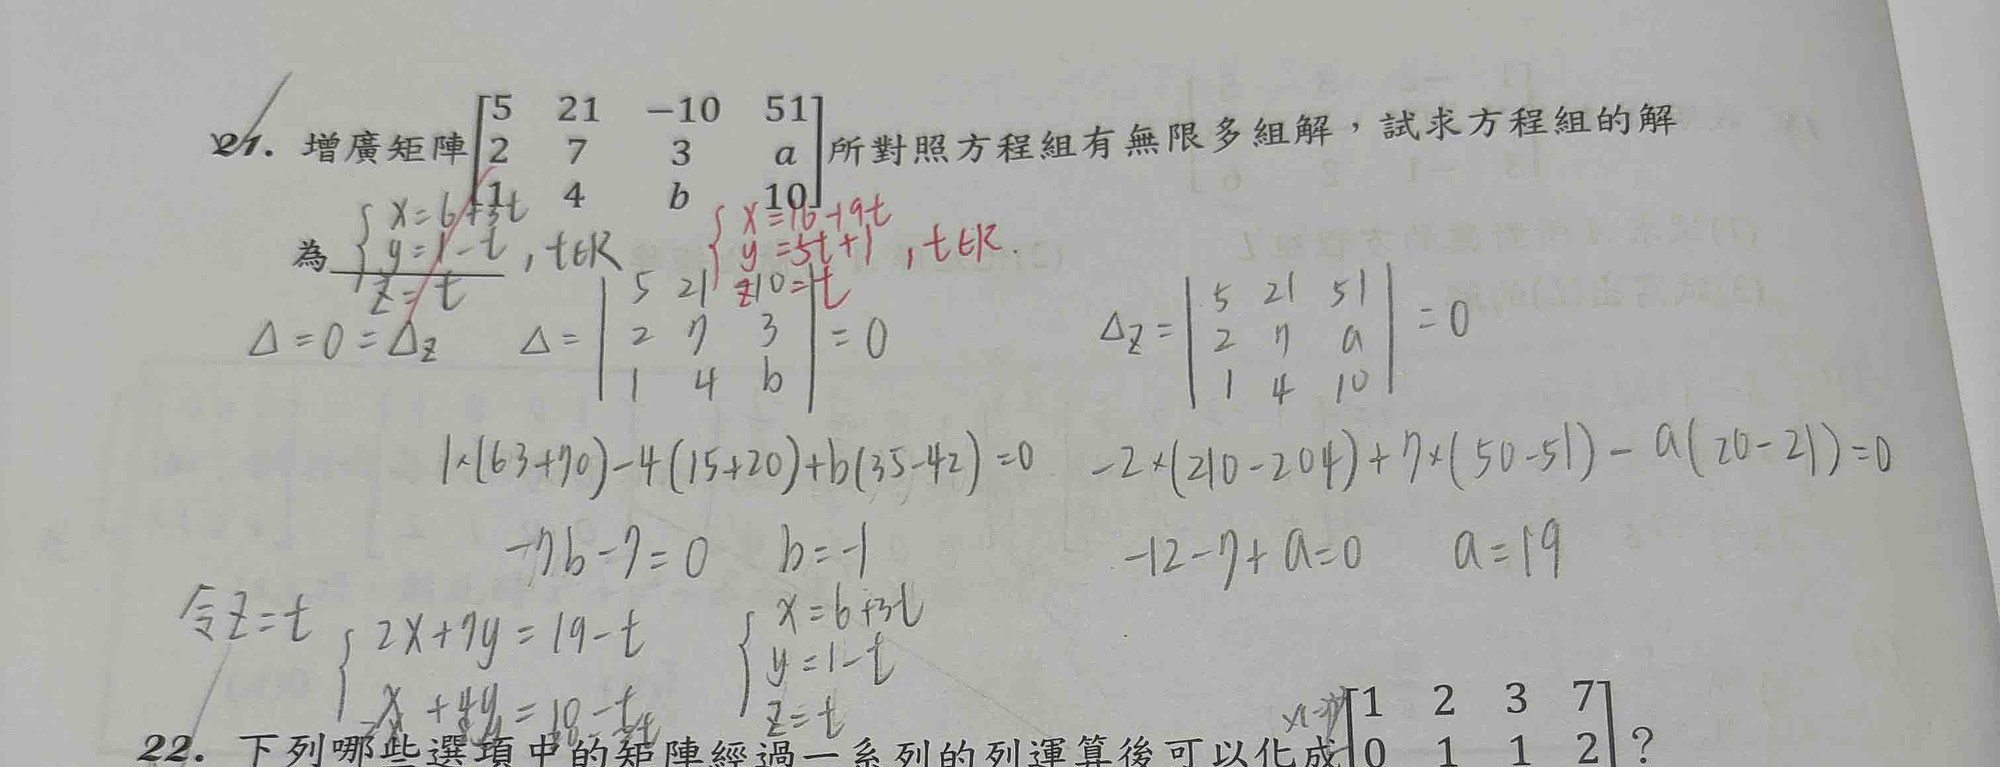 21. 增廣矩陣[5 21 -10 51; 2 7 3 a; 1 4 b 10]所對照方程組有無限多組解，試求方程組的解
為 {x=6+3t, y=1-t, z=t, t∈R
{y=5t+1, z=t, t∈R.
Δ=0=Δz Δ=|5 21 -10; 2 7 3; 1 4 b|=0 Δz=|5 21 51; 2 7 a; 1 4 10|=0
1×(63+70)-4(15+20)+b(35-42)=0 -2×(210-204)+7×(50-51)-a(20-21)=0
-7b-7=0 b=-1 -12-7+a=0 a=19
令z=t {2x+7y=19-t {x=6+3t
y=1-t
x+4y=10-t z=t
22. 下列哪些選項中的矩陣經過一系列的列運算後可以化成[1 2 3 7; 0 1 1 2]?